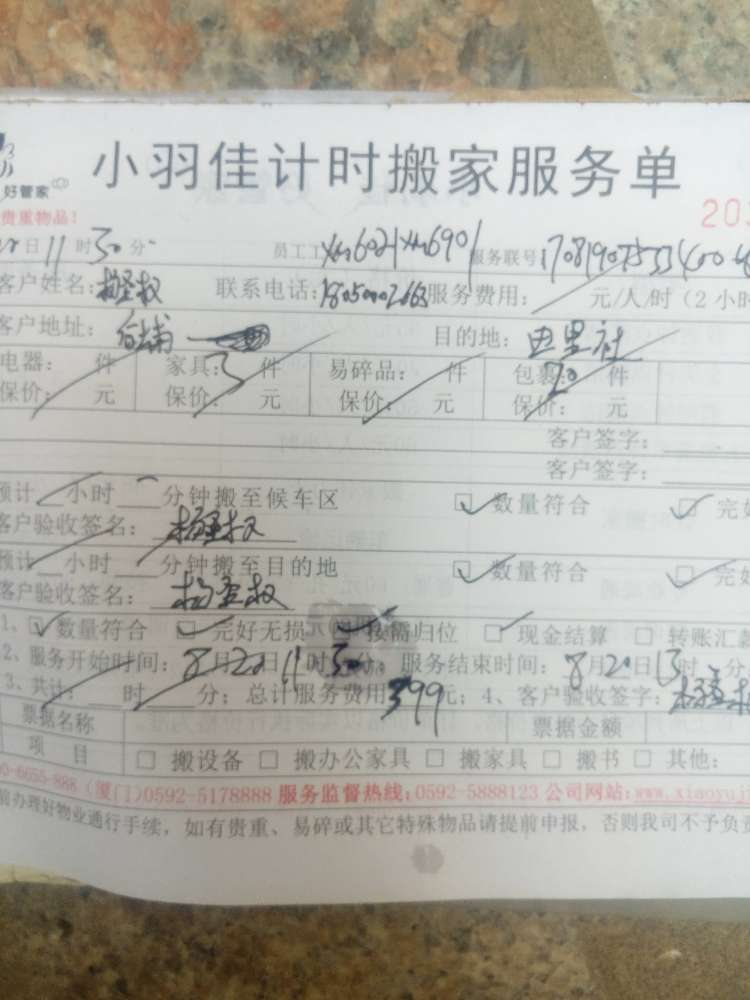 小羽佳计时搬家服务单
好管家
贵重物品！
日11时30分 员工工 xm6021 xm6901 服务联号:
客户姓名: 联系电话: 服务费用: 元/人/时（2小时
客户地址: 后埔 目的地:
电器: 件 家具: 3 件 易碎品: 件 包裹: 20 件
保价: 元 保价: 元 保价: 元 保价: 元
客户签字:
客户签字:
预计 小时 分钟搬至候车区 ☑数量符合 ☑完好
客户验收签名:
预计 小时 分钟搬至目的地 ☑数量符合 ☑完好
客户验收签名:
1、☑数量符合 ☑完好无损 ☑按需归位 ☑现金结算 □转账汇款
2、服务开始时间: 8月20日11时30分; 服务结束时间: 8月20日15时 分
3、共计: 时 分; 总计服务费用399元; 4、客户验收签字:
票据名称 票据金额
项 目 □搬设备 □搬办公家具 □搬家具 □搬书 □其他:
00-6055-888（厦门)0592-5178888 服务监督热线:0592-5888123 公司网站:www.xiaoyuji
前办理好物业通行手续，如有贵重、易碎或其它特殊物品请提前申报，否则我司不予负责